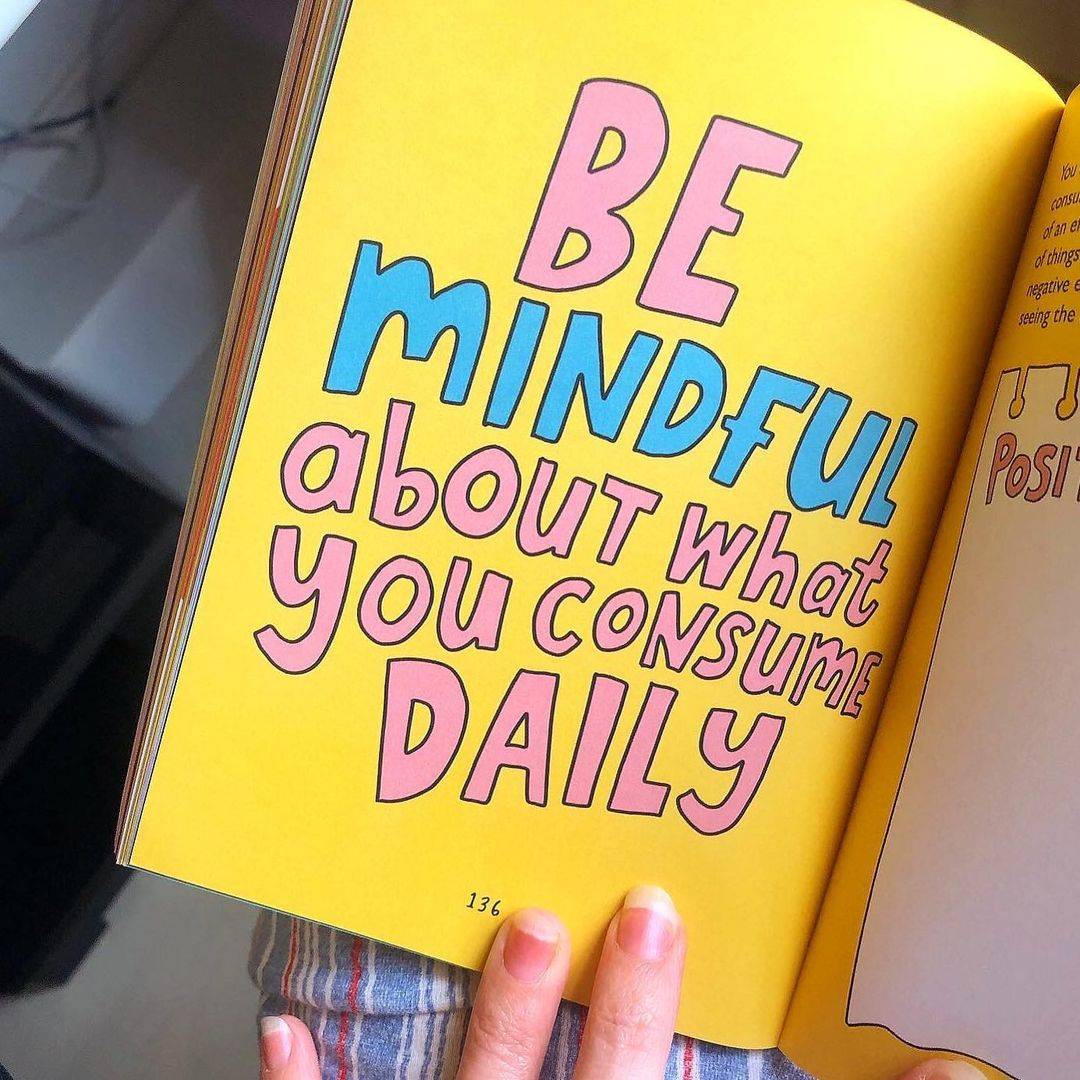 BE
MINDFUL
about what
you consume
DAILY
136
You
of things
negative
seeing the